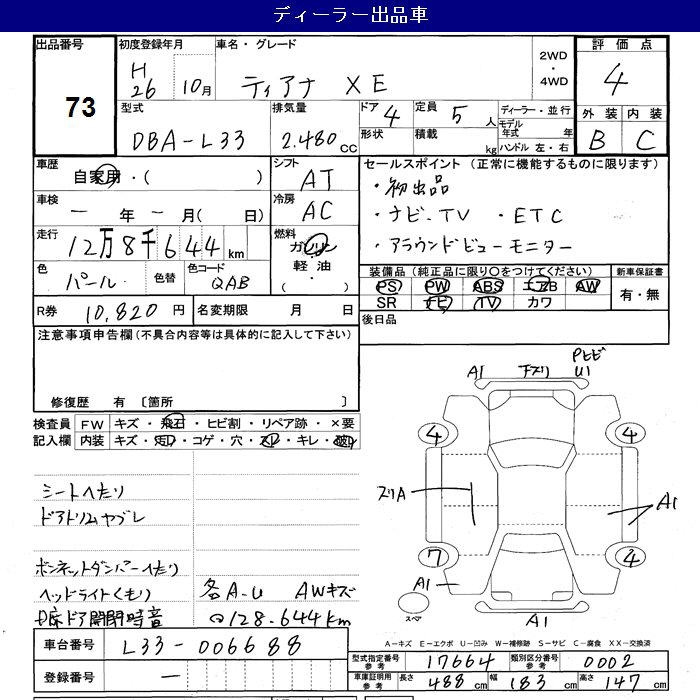 ディーラー出品車
出品番号
73
初度登録年月
H
26 10月
車名・グレード
ティアナ XE
2WD
・
4WD
評価点
4
型式
DBA-L33
排気量
2.480CC
ドア 4
定員 5人
形状
積載 kg
ディーラー・並行
モデル
年式 年
ハンドル 左・右
外装 内装
B C
車歴
自家用・( )
シフト
AT
車検
ー 年 ー 月( 日)
冷房
AC
走行
12万8千644km
燃料
ガソリン
軽油
( ・ )
色
パール
色替
色コード
QAB
セールスポイント(正常に機能するものに限ります)
・初出品
・ナビ、TV ・ETC
・アラウンドビューモニター
装備品(純正品に限り○をつけてください)
PS PW ABS エアB AW
SR ナビ TV カワ
新車保証書
有・無
R券 10,820円
名変期限 月 日
後日品
注意事項申告欄(不具合内容等は具体的に記入して下さい)
修復歴 有〔箇所 〕
検査員
記入欄
FW キズ・飛石・ヒビ割・リペア跡・×要
内装 キズ・・コゲ・穴・スレ・キレ・
シートへたり
ドアトリムヤブレ
ボンネットダンパーへたり
ヘッドライトくもり
各A-U AWキズ
ドア開閉時音
128.644km
車台番号 L33-006688
登録番号 ー
A1 Pヒビ
U1
4 4
スリA
A1
7 4
A1
スペア
A1
A-キズ E-エクボ U-凹み W-補修跡 S-サビ C-腐食 XX-交換済
型式指定番号
参考
17664
類別区分番号
参考
0002
車庫証明用
参考
長さ 488cm 幅 183cm 高さ 147cm